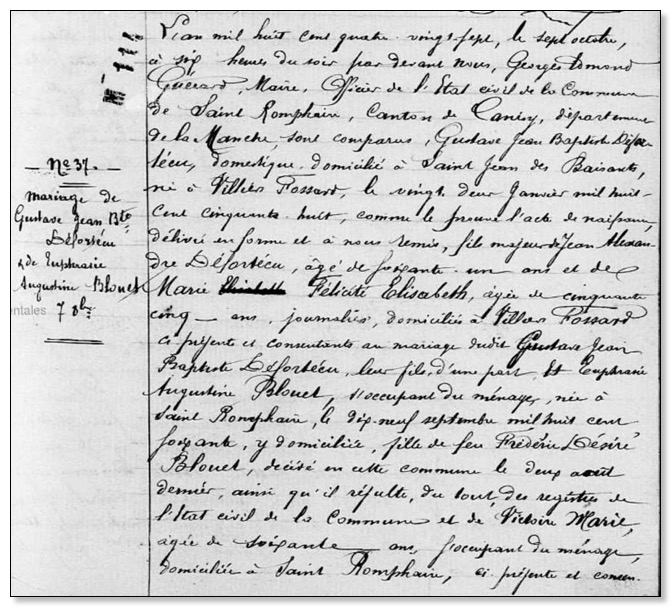 L'an mil huit cent quatre-vingt-sept, le sept octobre,
à six heures du soir par devant nous, Georges Edmond
Guérard, Maire, Officier de l'Etat civil de la Commune
de Saint Romphaire, Canton de Canisy, département
de la Manche, sont comparus, Gustave Jean Baptiste Défor-
técu, domestique, domicilié à Saint Jean des Baisants,
né à Villiers Fossard, le vingt deux Janvier mil huit-
cent cinquante-huit, comme le prouve l'acte de naissance,
délivré en forme et à nous remis, fils majeur de Jean Alexan-
dre Désortécu, âgé de soixante-un ans et de
Marie Félicité Elisabeth, âgée de cinquante
cinq ans, journaliers, domiciliés à Villiers Fossard
ci-présents et consentants au mariage dudit Gustave Jean
Baptiste Désortécu, leur fils, d'une part, Et Euphrasie
Augustine Blouet, s'occupant du ménage, née à
Saint Romphaire, le dix-neuf septembre mil huit cent
soixante, y domiciliée, fille de feu Frédéric Désiré
Blouet, décédé en cette commune le deux août
dernier, ainsi qu'il résulte, du tout, des registres de
l'Etat civil de la Commune et de Victoire Marie,
âgée de soixante ans, s'occupant du ménage,
domiciliée à Saint Romphaire, ci-présente et consen-
No 37.
Mariage de
Gustave Jean Bte
Désortécu
& de Euphrasie
Augustine Blouet
7 8bre
entales